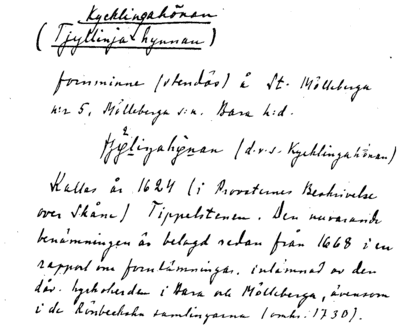 Kycklingahönan
(Tjyllinja-hynnan)
fornminne (stendös) å St. Mölleberga
n:r 5, Mölleberga s:n. Bara h:d.
(d.v.s. Kycklingahönan)
Kallas år 1624 (i Provsternes Beskrivelse
over Skåne) Tippelstenen. Den nuvarande
benämningen är belagd sedan från 1668 i en
rapport om fornlämningar, inlämnad av den
dåv. kyrkoherden i Bara och Mölleberga, ävensom
i de Rönbeckska samlingarna (omkr. 1730).